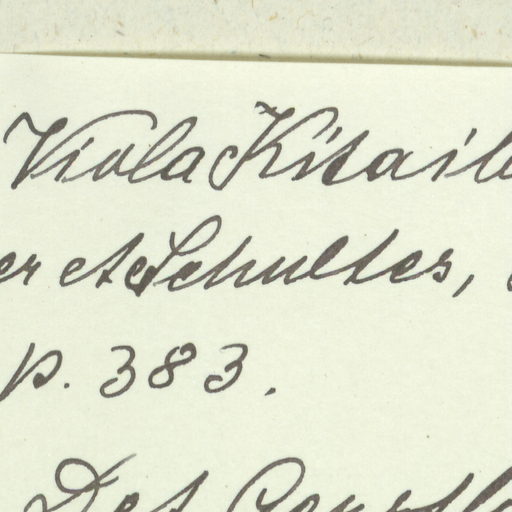 Viola Kitaib
er et Schultes,
p. 383.
Det.